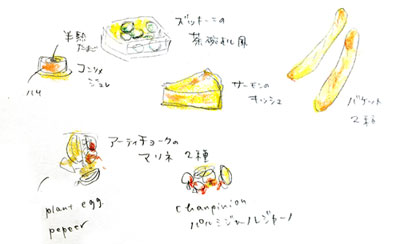 半熟
たまご
コンソメ
ジュレ
ハム
ズッキーニの
茶碗蒸し風
サーモンの
キッシュ
バゲット
2種
アーティチョークの
マリネ 2種
plant egg
pepeer
Chanpinion
パルミジャーノレジャーノ